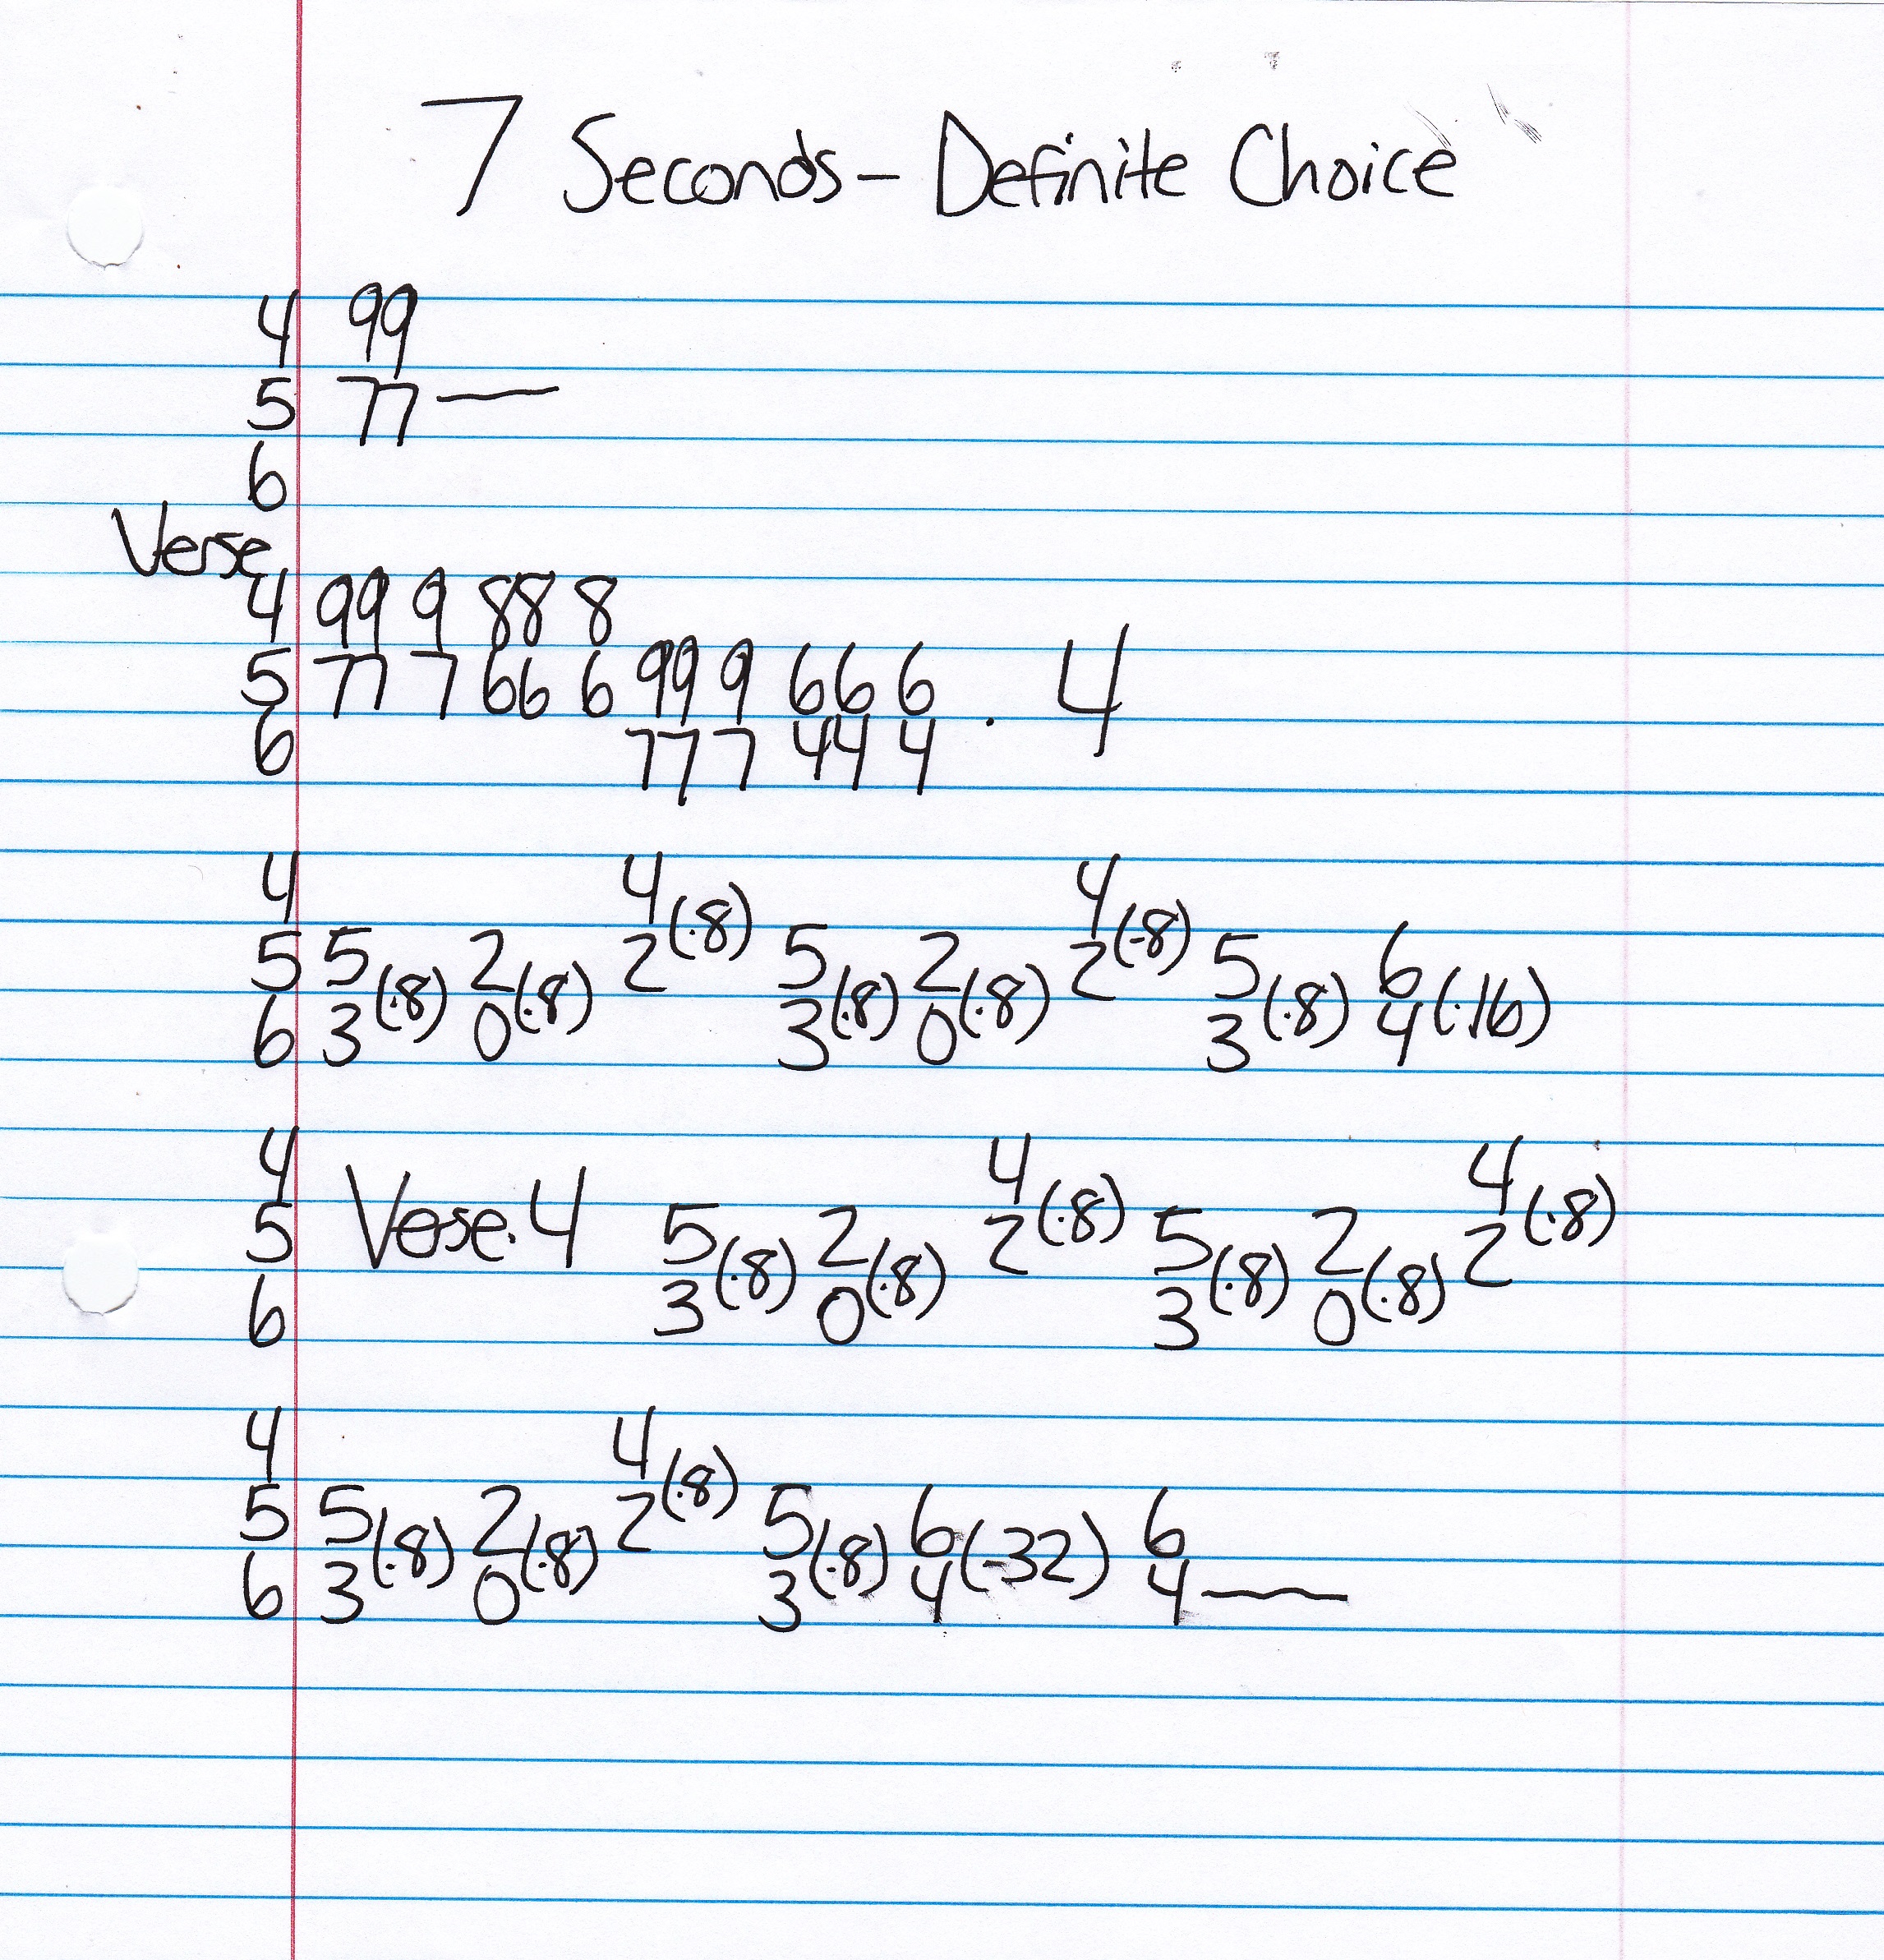 7 Seconds - Definite Choice
4 99
5 77 —
6
Verse
4 99 9 88 8
5 77 7 66 6 99 9 66 6 . 4
6 77 7 44 4
4 4(.8) 4(.8)
5 5(.8) 2(.8) 2 5(.8) 2(.8) 2 5(.8) 6(.16)
6 3 0 3 0 3 4
4 4(.8) 4(.8)
5 Verse.4 5(.8) 2(.8) 2 5(.8) 2(.8) 2
6 3 0 3 0
4 4(.8)
5 5(.8) 2(.8) 2 5(.8) 6(.32) 6
6 3 0 3 4 4 —